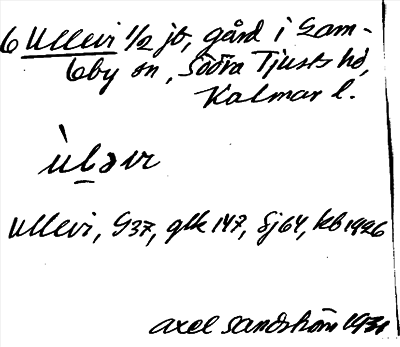 6 Ullevi 1/2 jb, gård i Gam-
leby sn, Södra Tjusts hd,
Kalmar l.
ùləvi
Ullevi, G37, glk 147, Sj64, kb 1926
Axel Sandström 1931